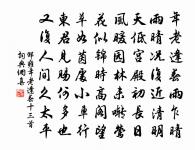 年老逢春雨乍晴
雨晴況復近清明
天低宮殿初長日
風暖園林未囀鶯
花似錦時高閣望
草如茵處小車行
東君見賜何多也
又復人間久太平
邵雍年老逢春十三首
詞典網集